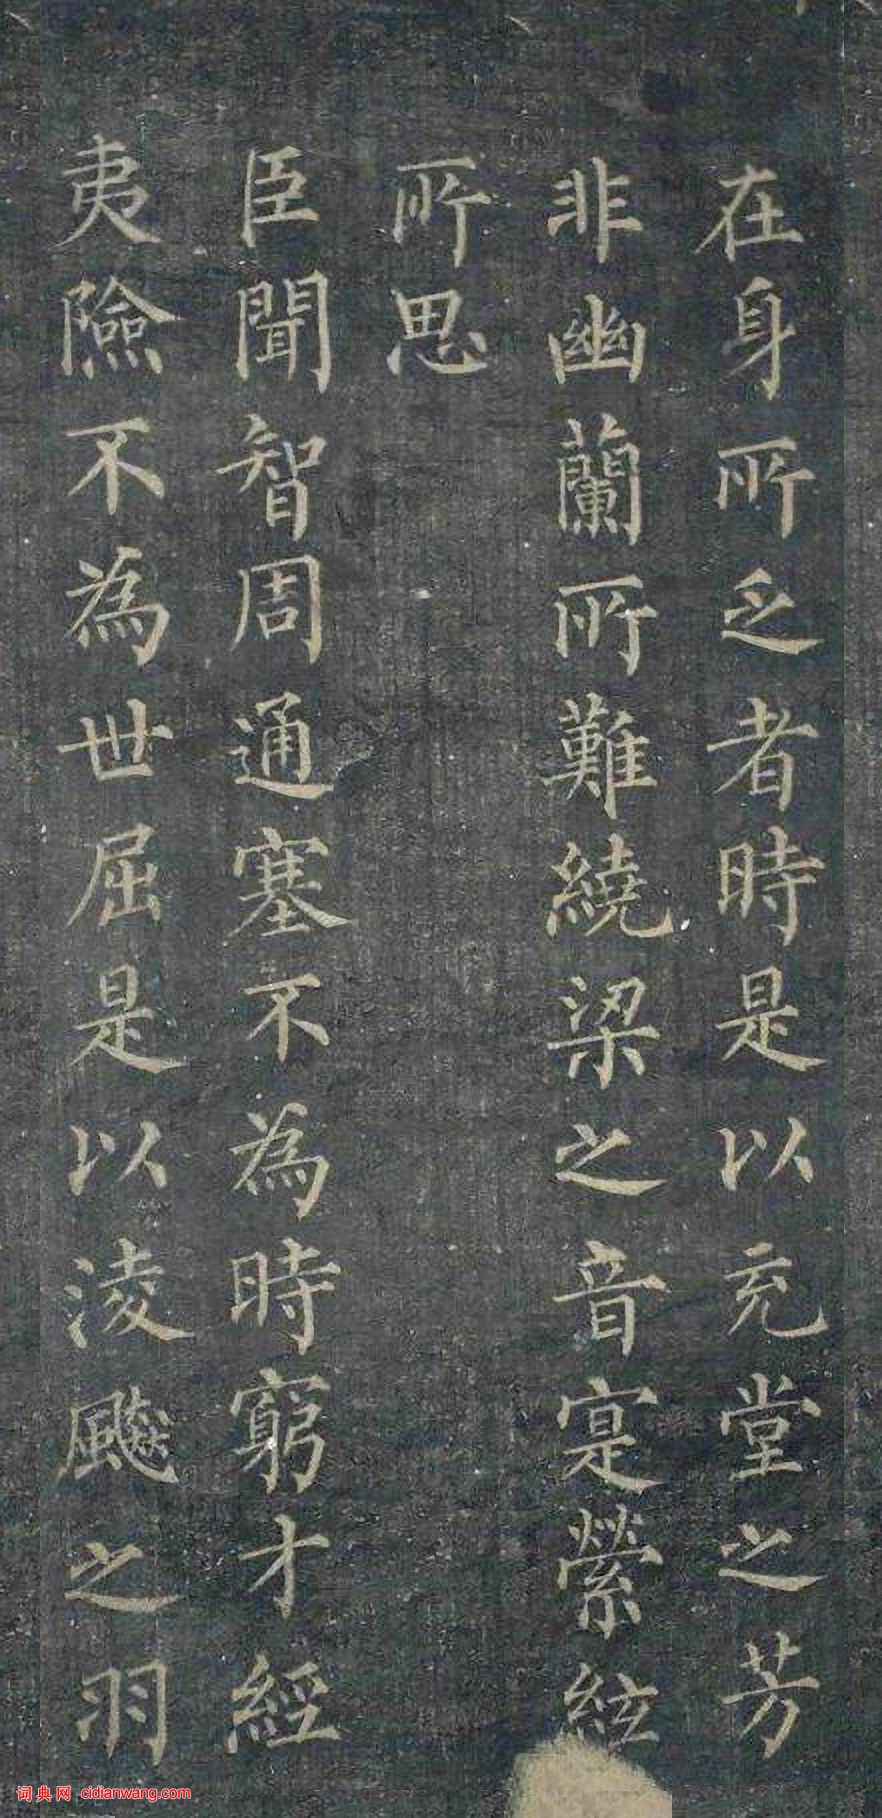 在身所乏者時是以充堂之芳
非幽蘭所難繞梁之音寔縈絃
所思
臣聞智周通塞不為時窮才經
夷險不為世屈是以淩飈之羽
词典网 cidianwang.com